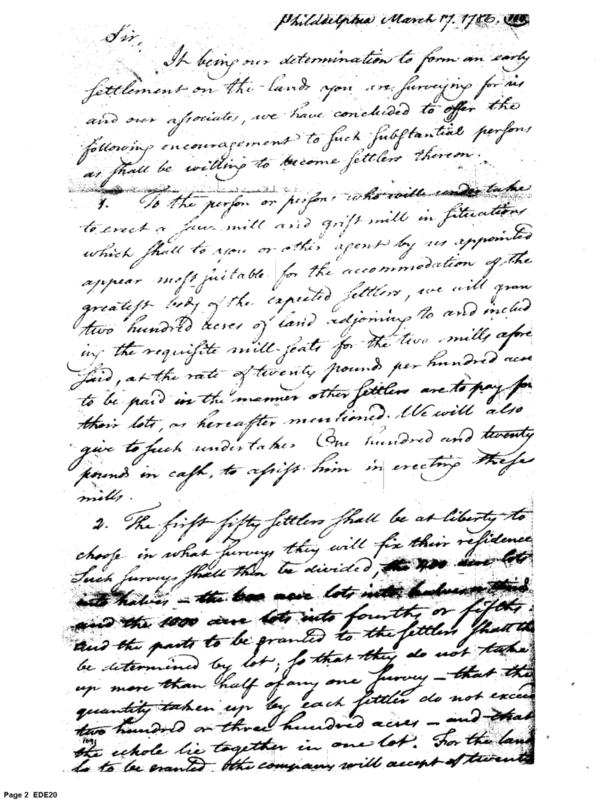 Philadelphia March 17. 1786.
Sir,
It being our determination to form an early
settlement on the lands you are surveying for us
and our associates, we have concluded to offer the
following encouragement to such substantial persons
as shall be willing to become settlers thereon.
1. To the person or persons who will undertake
to erect a saw mill and grist mill in situations
which shall to you or other agent by us appointed
appear most suitable for the accommodation of the
greatest body of the expected settlers, we will gran
two hundred acres of land adjoining to and includ
ing the requisite mill-seats for the two mills afore
said, at the rate of twenty pounds per hundred acre
to be paid in the manner other settlers are to pay for
their lots, as hereafter mentioned. We will also
give to such undertaker One hundred and twenty
pounds in cash, to assist him in erecting these
mills.
2. The first fifty settlers shall be at liberty to
choose in what surveys they will fix their residence
Such surveys shall then be divided, the acre lots
into halves – the 600 acre lots into
and the 1000 acre lots into fourths or fifths.
and the parts to be granted to the settlers shall th
be determined by lot; so that they do not take
up more than half of any one survey – that the
quantity taken up by each settler do not excee
two hundred or three hundred acres – and that
the whole lie together in one lot. For the land
so to be granted the company will accept of twenty
Page 2 EDE20